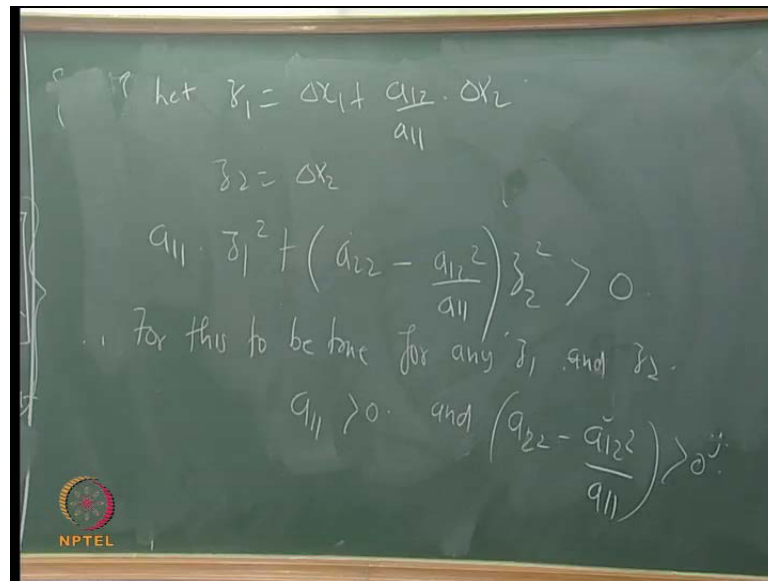 Let z₁ = Δx₁ + a₁₂/a₁₁ · Δx₂
z₂ = Δx₂
a₁₁ · z₁² + (a₂₂ - a₁₂²/a₁₁) z₂² > 0.
For this to be true for any z₁ and z₂.
a₁₁ > 0. and (a₂₂ - a₁₂²/a₁₁) > 0
NPTEL